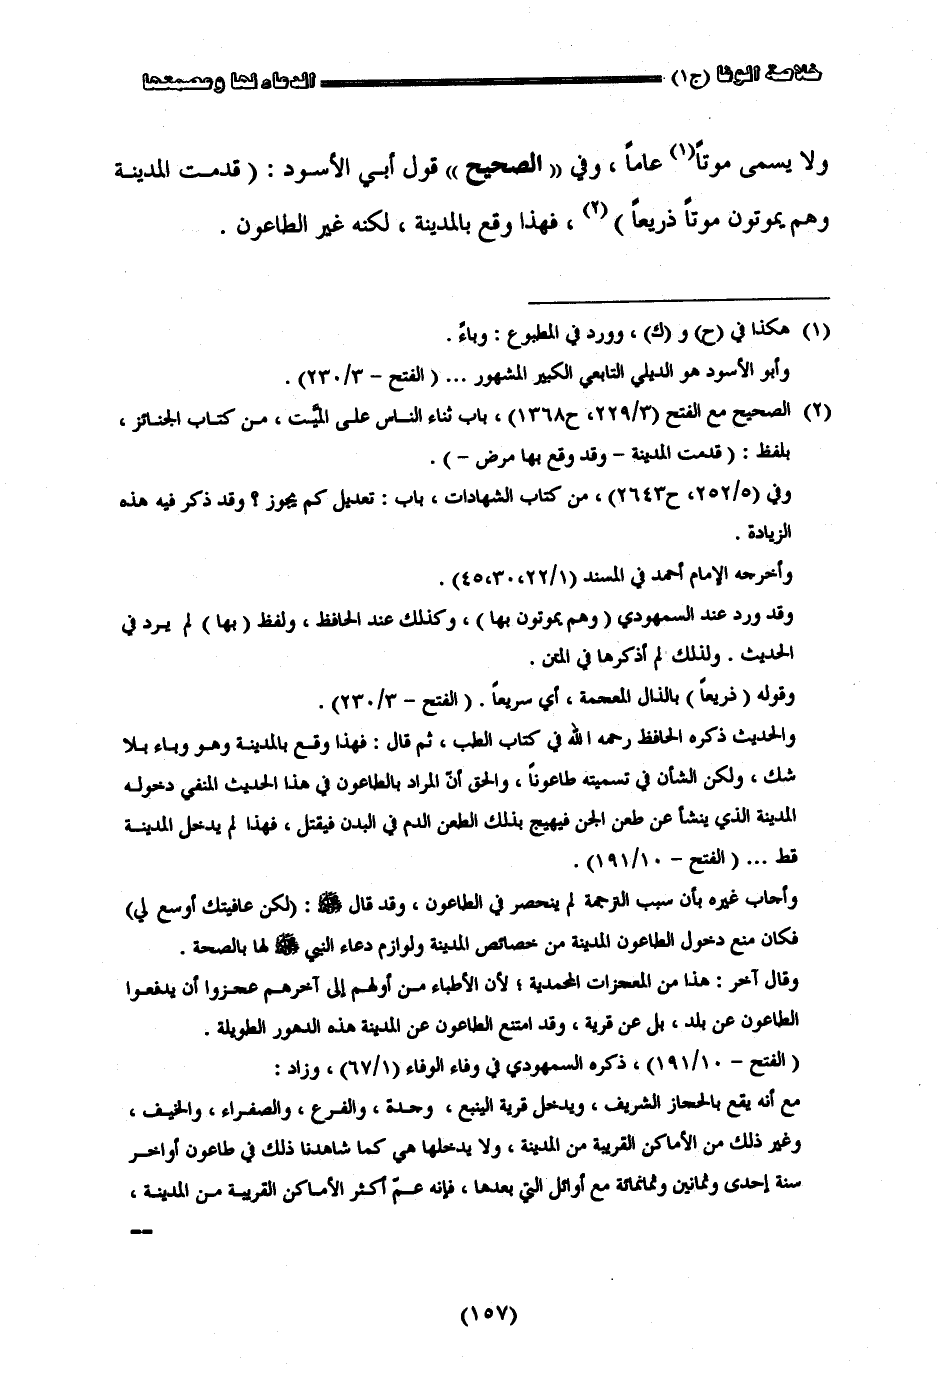 خلاصة الوفا (ج١) الدعاء لها وعصمتها
ولا يسمى موتاً(١) عاماً ، وفي « الصحيح » قول أبي الأسود : ( قدمت المدينة
وهم يموتون موتاً ذريعاً )(٢) ، فهذا وقع بالمدينة ، لكنه غير الطاعون .
(١) هكذا في (ح) و (ك) ، وورد في المطبوع : وباءً .
وأبو الأسود هو الديلي التابعي الكبير المشهور ... ( الفتح - ٢٣٠/٣) .
(٢) الصحيح مع الفتح (٢٢٩/٣، ح١٣٦٨) ، باب ثناء الناس على الميِّت ، من كتاب الجنائز ،
بلفظ : ( قدمت المدينة - وقد وقع بها مرض - ) .
وفي (٢٥٢/٥، ح٢٦٤٣) ، من كتاب الشهادات ، باب : تعديل كم يجوز ؟ وقد ذكر فيه هذه
الزيادة .
وأخرجه الإمام أحمد في المسند (٢٢/١،٣٠،٤٥) .
وقد ورد عند السمهودي ( وهم يموتون بها ) ، وكذلك عند الحافظ ، ولفظ ( بها ) لم يرد في
الحديث . ولذلك لم أذكرها في المتن .
وقوله ( ذريعاً ) بالذال المعجمة ، أي سريعاً . ( الفتح - ٢٣٠/٣) .
والحديث ذكره الحافظ رحمه الله في كتاب الطب ، ثم قال : فهذا وقع بالمدينة وهو وباء بلا
شك ، ولكن الشأن في تسميته طاعوناً ، والحق أنّ المراد بالطاعون في هذا الحديث المنفي دخوله
المدينة الذي ينشأ عن طعن الجن فيهيج بذلك الطعن الدم في البدن فيقتل ، فهذا لم يدخل المدينة
قط ... ( الفتح - ١٩١/١٠) .
وأجاب غيره بأن سبب الترجمة لم ينحصر في الطاعون ، وقد قال ﷺ : (لكن عافيتك أوسع لي)
فكان منع دخول الطاعون المدينة من خصائص المدينة ولوازم دعاء النبي ﷺ لها بالصحة .
وقال آخر : هذا من المعجزات المحمدية ؛ لأن الأطباء من أولهم إلى آخرهم عجزوا أن يدفعوا
الطاعون عن بلد ، بل عن قرية ، وقد امتنع الطاعون عن المدينة هذه الدهور الطويلة .
( الفتح - ١٩١/١٠) ، ذكره السمهودي في وفاء الوفاء (٦٧/١) ، وزاد :
مع أنه يقع بالحجاز الشريف ، ويدخل قرية الينبع ، وجدة ، والفرع ، والصفراء ، والخيف ،
وغير ذلك من الأماكن القريبة من المدينة ، ولا يدخلها هي كما شاهدنا ذلك في طاعون أواخر
سنة إحدى وثمانين وثمانمائة مع أوائل التي بعدها ، فإنه عمّ أكثر الأماكن القريبة من المدينة ،
--
(١٥٧)